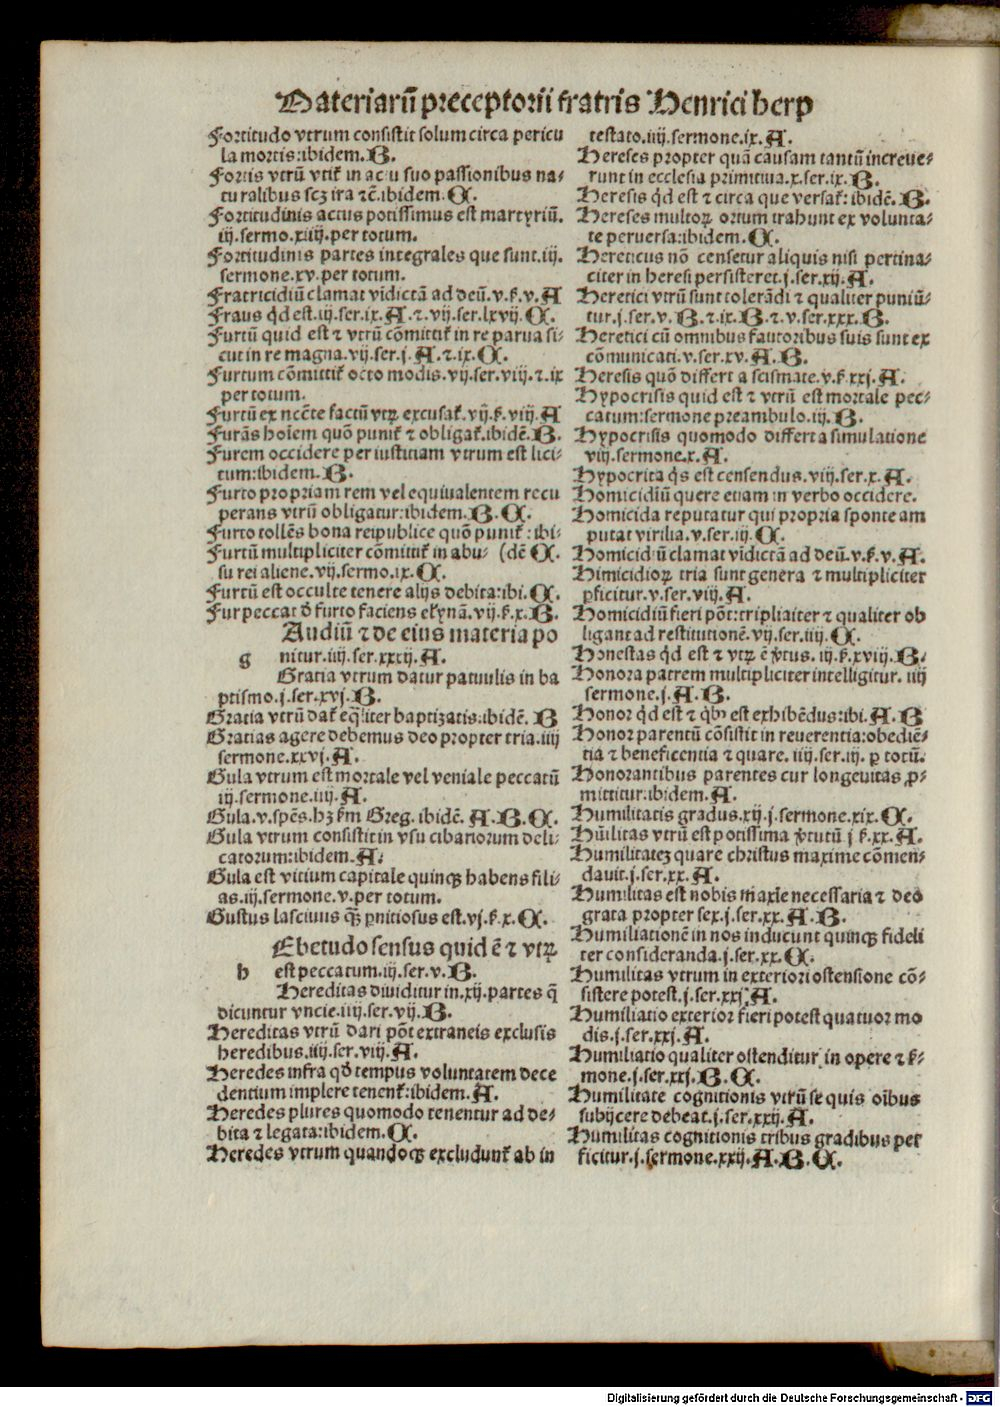 Materiarū preceptorii fratris Henrici herp
Fortitudo vtrum consistit solum circa pericu
la mortis:ibidem.B.
Fortis vtrū vtit᷑ in actu suo passionibus na⸗
turalibus scꝫ ira ⁊c̄.ibidem.C.
Fortitudinis actus potissimus est martyriū.
iij.sermo.xiiij.per totum.
Fortitudinis partes integrales que sunt.iij.
sermone.xv.per totum.
Fratricidiū clamat vīdictā ad deū.v.ẜ.v.A
Fraus qd̄ est.iij.ser.ix.A.⁊.vij.ser.lxvij.C.
Furtū quid est ⁊ vtrū cōmittit᷑ in re parua si⸗
cut in re magna.vij.ser.j.A.⁊.ix.C.
Furtum cōmittit᷑ octo modis.vij.ser.viij.⁊.ix
per totum.
Furtū ex ncēte factū vtꝝ excusat᷑.vij.ẜ.viij.A
Furās hoīem quō punit᷑ ⁊ obligat᷑.ibidē.B.
Furem occidere per iustitiam vtrum est lici⸗
tum:ibidem.B.
Furto propriam rem vel equiualentem recu
perans vtrū obligatur:ibidem.B.C.
Furto tollēs bona reipublice quō punit᷑:ibi⸗
Furtū multipliciter cōmittit᷑ in abu⸗ (dē C.
su rei aliene.vij.sermo.ix.C.
Furtū est occulte tenere alijs debita:ibi.C.
Fur peccat d̄ furto faciens elꝫynā.vij.ẜ.x.B.
Audiū ⁊ de eius materia po
g nitur.iiij.ser.xxij.A.
Gratia vtrum datur paruulis in ba
ptismo.j.ser.xvj.B.
Gratia vtrū dat᷑ eq̄liter baptizatis:ibidē.B
Gratias agere debemus deo propter tria.iiij
sermone.xxvj.A.
Gula vtrum est mortale vel veniale peccatū
iij.sermone.iiij.A.
Gula.v.spēs.hꝫ ẜm Greg. ibidē.A.B.C.
Gula vtrum consistit in vsu cibariorum deli⸗
catorum:ibidem.A.
Gula est vitium capitale quinqꝫ habens fili⸗
as.iij.sermone.v.per totum.
Gustus lasciuus qꝫ ꝑnitiosus est.vj.ẜ.x.C.
Ebetudo sensus quid ē ⁊ vtꝝ
h est peccatum.iij.ser.v.B.
Hereditas diuiditur in.xij.partes q̄
dicuntur vncie.iiij.ser.vij.B.
Hereditas vtrū dari pōt extraneis exclusis
heredibus.iiij.ser.viij.A.
Heredes infra qd̄ tempus voluntatem dece
dentium implere tenent᷑:ibidem.A.
Heredes plures quomodo tenentur ad de⸗
bita ⁊ legata:ibidem.C.
Heredes vtrum quandoqꝫ excludunt᷑ ab in
testato.iiij.sermone.ix.A.
Hereses propter quā causam tantū increue⸗
runt in ecclesia primitiua.x.ser.ix.B.
Heresis qd̄ est ⁊ circa que versat᷑:ibidē.B.
Hereses multoꝝ ortum trahunt ex volunta⸗
te peruersa:ibidem.C.
Hereticus nō censetur aliquis nisi pertina⸗
citer in heresi persisteret.j.ser.xij.A.
Heretici vtrū sunt tolerādi ⁊ qualiter puniū⸗
tur.j.ser.v.B.⁊.ix.B.⁊.v.ser.xxx.B.
Heretici cū omnibus fautoribus suis sunt ex
cōmunicati.v.ser.xv.A.B.
Heresis quō differt a scismate.v.ẜ.xxj.A.
Hypocrisis quid est ⁊ vtrū est mortale pec⸗
catum:sermone preambulo.iij.B.
Hypocrisis quomodo differt a simulatione
viij.sermone.x.A.
Hypocrita q̇s est censendus.viij.ser.x.A.
Homicidiū quere etiam in verbo occidere.
Homicida reputatur qui propria sponte am
putat virilia.v.ser.iij.C.
Homicidiū clamat vīdictā ad deū.v.ẜ.v.A.
Himicidioꝝ tria sunt genera ⁊ multipliciter
ꝑficitur.v.ser.viij.A.
Homicidiū fieri pōt:tripliaiter ⁊ qualiter ob
ligant ad restitutionē.vij.ser.iiij.C.
Honestas qd̄ est ⁊ vtꝝ ē v̓tus. iij.ẜ.xviij.B.
Honora patrem multipliciter intelligitur. iiij
sermone.j.A.B.
Honor qd̄ est ⁊ qb᷒ est exhibēdus:ibi.A.B
Honor parentū cōsistit in reuerentia:obediē⸗
tia ⁊ beneficentia ⁊ quare. iiij.ser.iij. ꝑ totū.
Honorantibus parentes cur longeuitas ꝓ⸗
mittitur:ibidem.A.
Humilitatis gradus.xij.j.sermone.xix.C.
Hūilitas vtrū est potissima v̓tutū j ẜ.xx.A.
Humilitatez quare christus maxime cōmen⸗
dauit.j.ser.xx.A.
Humilitas est nobis maxīe necessaria ⁊ deo
grata propter sex.j.ser.xx.A.B.
Humiliationē in nos inducunt quinqꝫ fideli
ter consideranda.j.ser.xx.C.
Humilitas vtrum in exteriori ostensione cō⸗
sistere potest.j.ser.xxj.A.
Humiliatio exterior fieri potest quatuor mo
dis.j.ser.xxj.A.
Humiliatio qualiter ostenditur in opere ⁊ ẜ⸗
mone.j.ser.xxj.B.C.
Humilitate cognitionis vtrū se quis oībus
subijcere debeat.j.ser.xxij.A.
Humilitas cognitionis tribus gradibus per
ficitur.j.sermone.xxij.A.B.C.
Digitalisierung gefördert durch die Deutsche Forschungsgemeinschaft - DFG